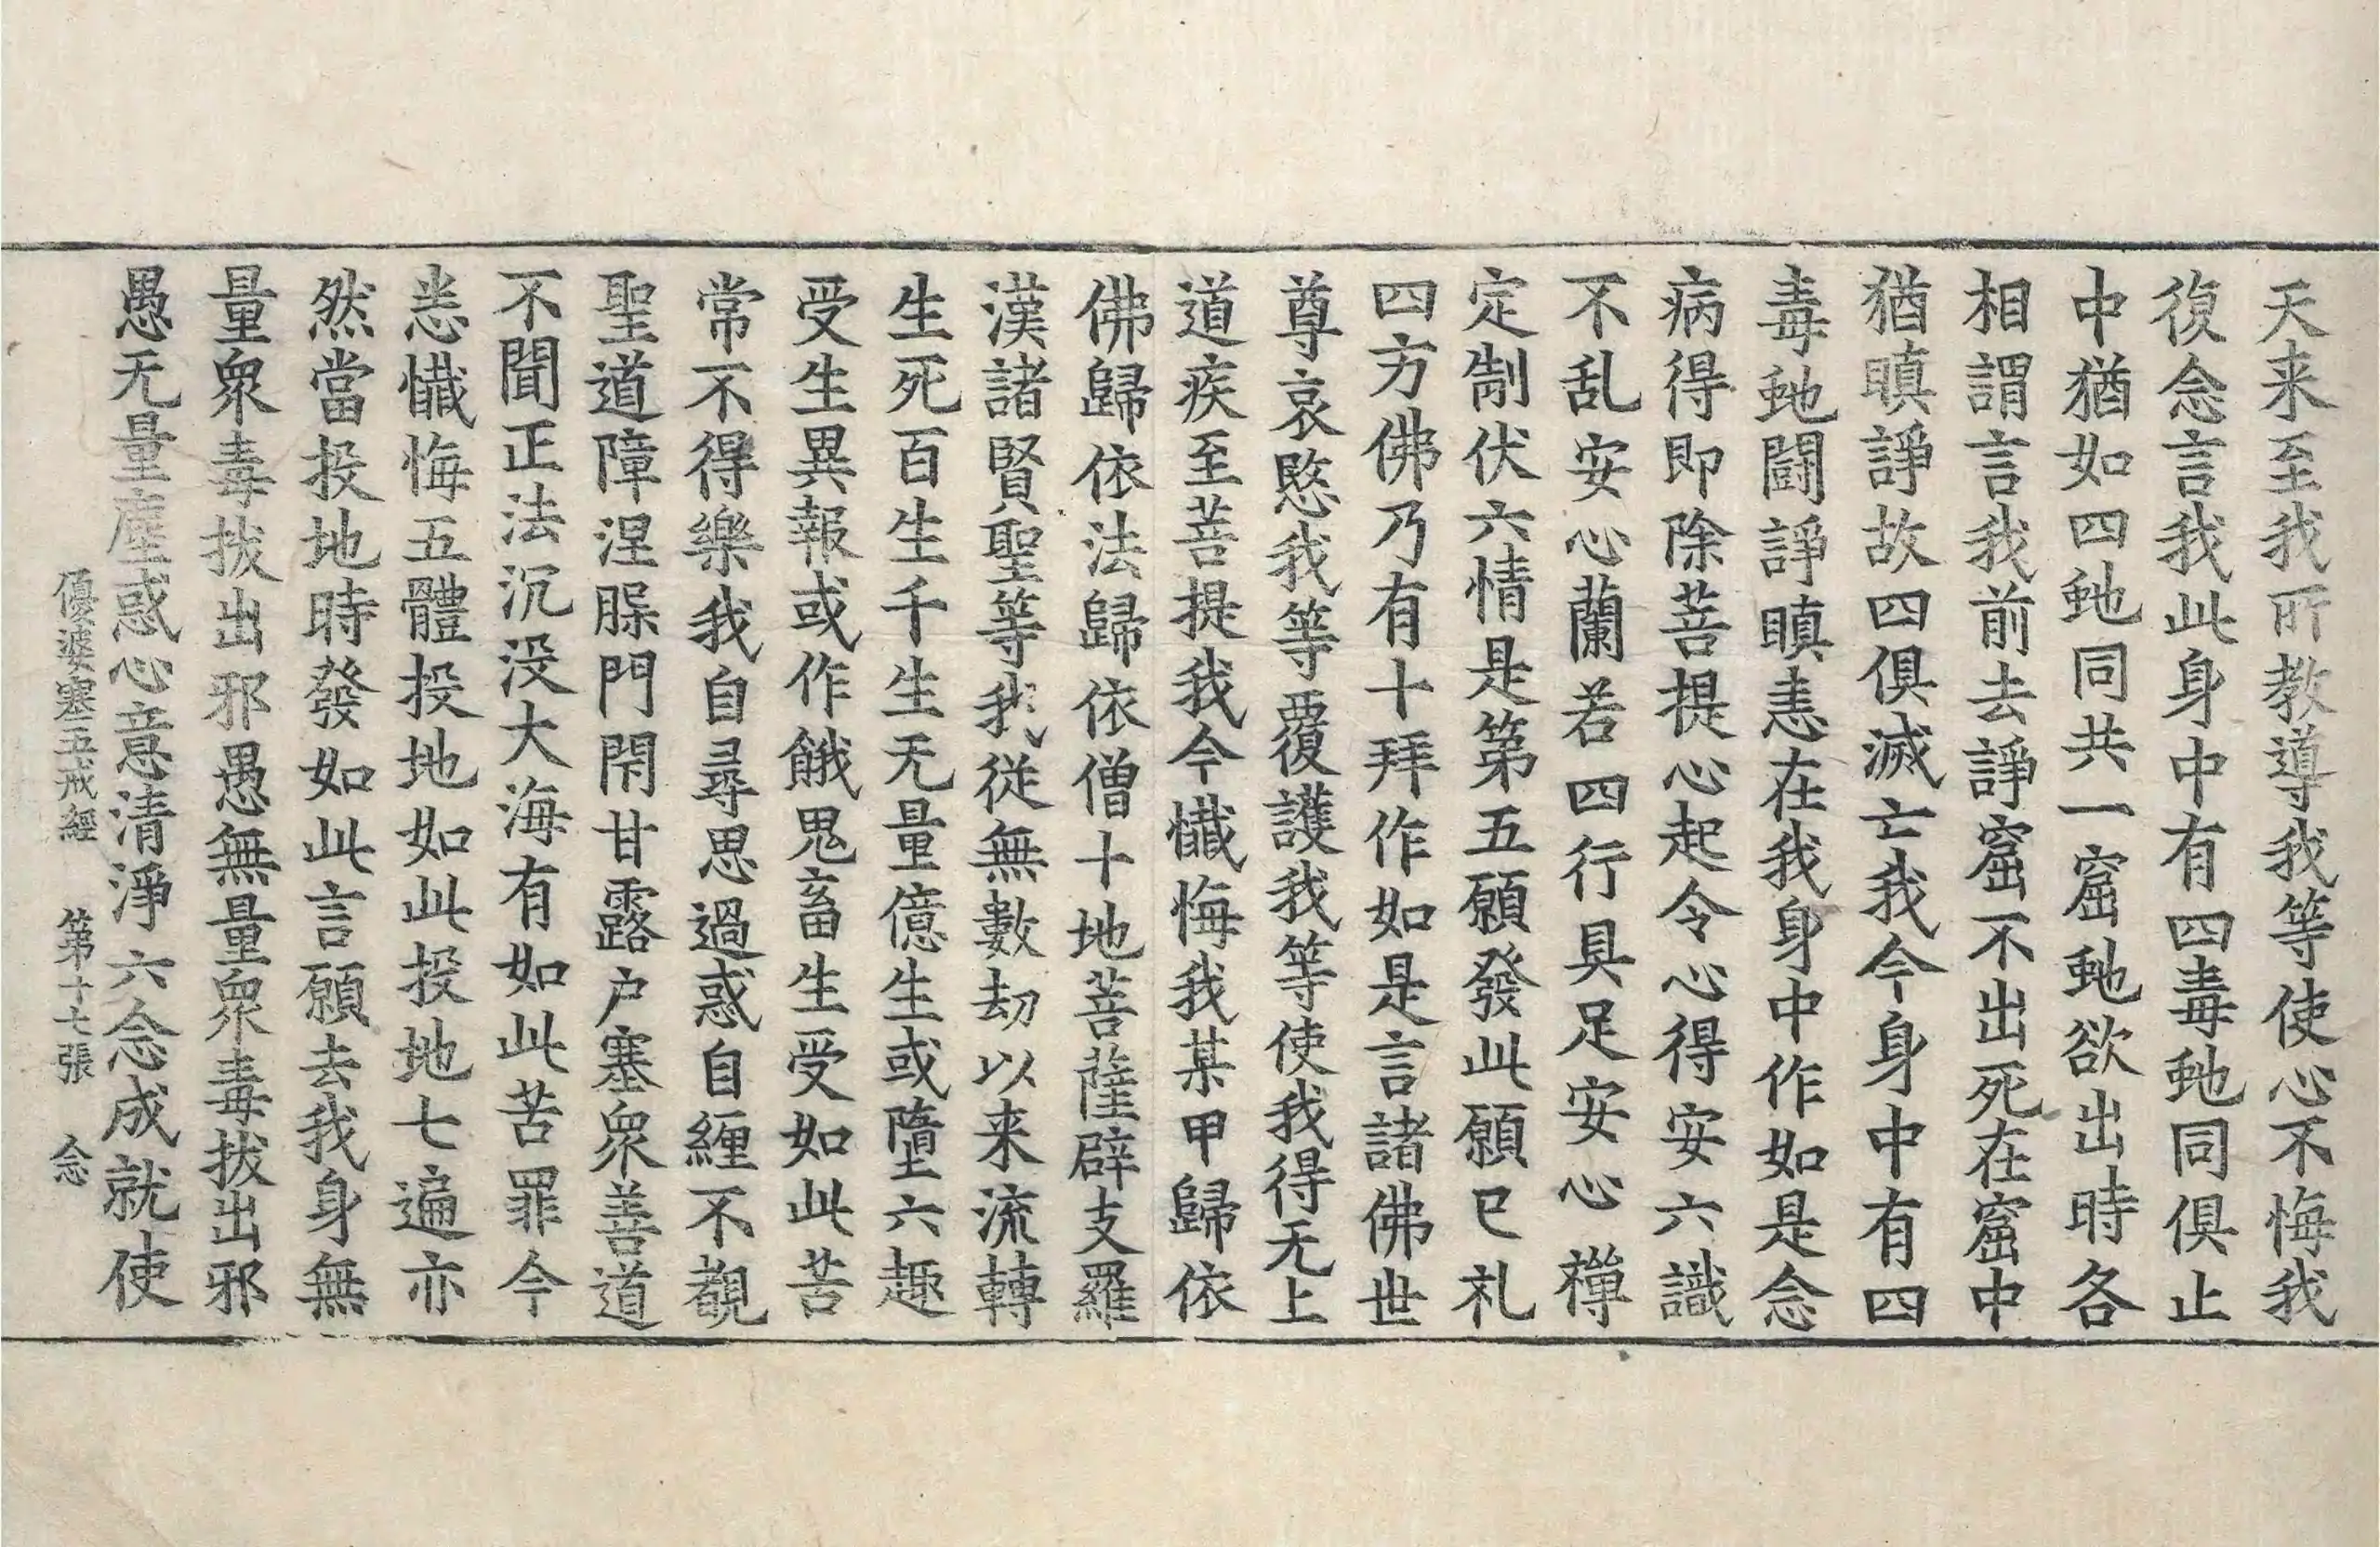 天来至我所教導我等使心不悔我
復念言我此身中有四毒虵同俱止
中猶如四虵同共一窟虵欲出時各
相謂言我前去諍窟不出死在窟中
猶瞋諍故四俱滅亡我今身中有四
毒虵闘諍瞋恚在我身中作如是念
病得即除菩提心起令心得安六識
不乱安心蘭若四行具足安心禪
定制伏六情是第五願發此願已礼
四方佛乃有十拜作如是言諸佛世
尊哀愍我等覆護我等使我得无上
道疾至菩提我今懺悔我某甲歸依
佛歸依法歸依僧十地菩薩辟支羅
漢諸賢聖等我從無數劫以来流轉
生死百生千生无量億生或墮六趣
受生異報或作餓鬼畜生受如此苦
常不得樂我自尋思過惑自纒不觀
聖道障涅腂門閇甘露户塞衆善道
不聞正法沉没大海有如此苦罪今
悉懺悔五體投地如此投地七遍亦
然當投地時發如此言願去我身無
量衆毒拔出邪愚無量衆毒拔出邪
愚无量塵惑心意清淨六念成就使
優婆塞五戒經 第十七張 念